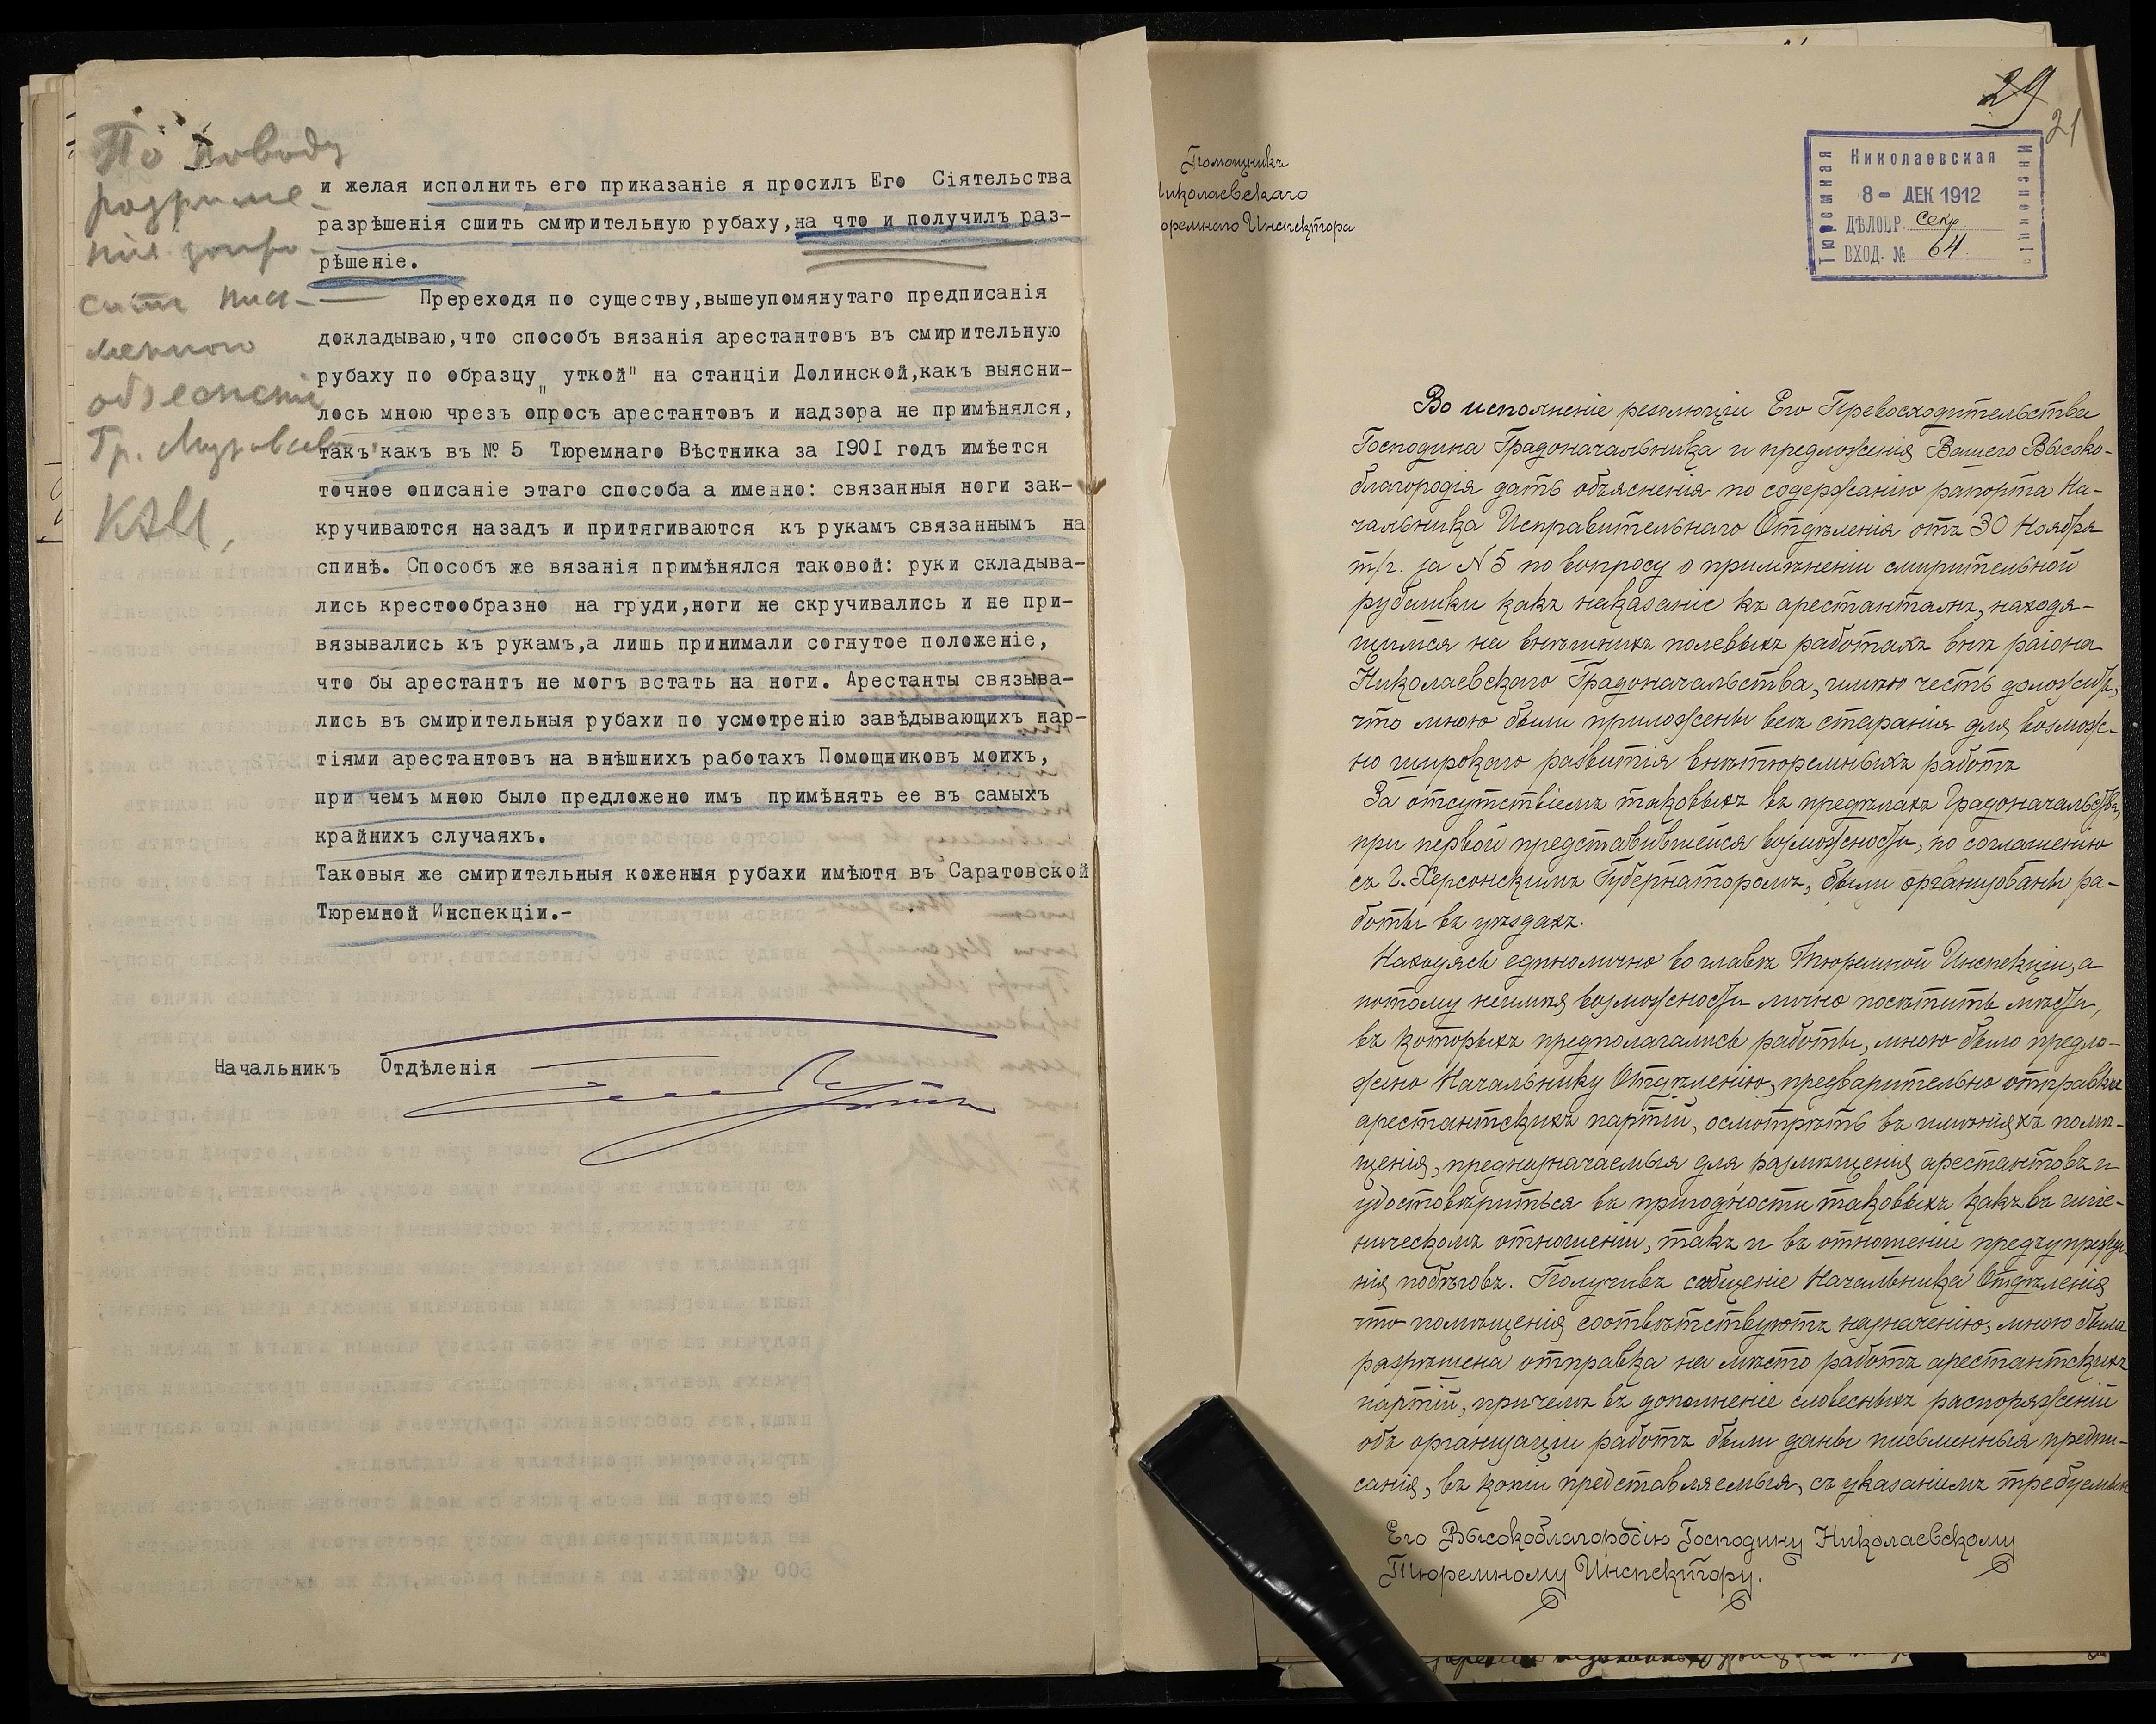 По поводу
разрише-
нія запро-
сить пись-
меннаго
объясненія
Гр. Муравьева.
и желая исполнить его приказаніе я просилъ Его Сіятельства
разрѣшенія сшить смирительную рубаху,на что и получилъ раз-
рѣшеніе.
Пререходя по существу,вышеупомянутаго предписанія
докладываю,что способъ вязанія арестантовъ въ смирительную
рубаху по образцу „уткой" на станціи Долинской,какъ выясни-
лось мною чрезъ опросъ арестантовъ и надзора не примѣнялся,
такъ какъ въ № 5 Тюремнаго Вѣстника за 1901 годъ имѣется
точное описаніе этаго способа а именно: связанныя ноги зак-
кручиваются назадъ и притягиваются къ рукамъ связаннымъ на
спинѣ. Способъ же вязанія примѣнялся таковой: руки складыва-
лись крестообразно на груди,ноги не скручивались и не при-
вязывались къ рукамъ,а лишь принимали согнутое положеніе,
что бы арестантъ не могъ встать на ноги. Арестанты связыва-
лись въ смирительныя рубахи по усмотренію завѣдывающихъ пар-
тіями арестантовъ на внѣшнихъ работахъ Помощниковъ моихъ,
при чемъ мною было предложено имъ примѣнять ее въ самыхъ
крайнихъ случаяхъ.
Таковыя же смирительныя коженыя рубахи имѣютя въ Саратовской
Тюремной Инспекціи.-
Начальникъ Отдѣленія
29
21
Николаевская
Тюремная
Инспекція
8- ДЕК 1912
ДѢЛОПР. Секр
ВХОД. № 64
Помощникъ
Николаевскаго
Тюремнаго Инспектора
Во исполненіе резолюціи Его Превосходительства
Господина Градоначальника и предложенія Вашего Высоко-
благородія дать объясненія по содержанію рапорта На-
чальника Исправительнаго Отдѣленія отъ 30 Ноября
т/г. за N 5 по вопросу о примѣненіи смирительной
рубашки какъ наказаніе къ арестантамъ, находя-
щимся на внѣшнихъ полевыхъ работахъ внѣ раіона
Николаевскаго Градоначальства, имѣю честь доложить,
что мною были приложены всѣ старанія для возмож-
но широкаго развитія внѣтюремныхъ работъ
За отсутствіемъ таковыхъ въ предѣлахъ Градоначальства,
при первой представившейся возможности, по соглашенію
съ г. Херсонскимъ Губернаторомъ, были организованы ра-
боты въ уѣздахъ.
Находясь единолично во главѣ Тюремной Инспекціи, а
потому неимѣя возможности лично посѣтить мѣста,
въ которыхъ предполагались работы, мною было предло-
жено Начальнику Отдѣленію, предварительно отправки
арестантскихъ партій, осмотрѣть въ имѣніяхъ помѣ-
щенія, предназначаемыя для размѣщенія арестантовъ и
удостовѣриться въ пригодности таковыхъ какъ въ гигіе-
ническомъ отношеніи, такъ и въ отношеніе предупрежде-
нія побѣговъ. Получивъ сообщеніе Начальника Отдѣленія
что помѣщенія соотвѣтствуютъ назначенію, мною была
разрѣшена отправка на мѣсто работъ арестантскихъ
партій, при чемъ въ дополненіе словесныхъ распоряженій
объ организаціи работъ были даны письменныя предпи-
санія, въ копіи представляемыя, съ указаніемъ требуемыхъ
Его Высокоблагородію Господину Николаевскому
Тюремному Инспектору.